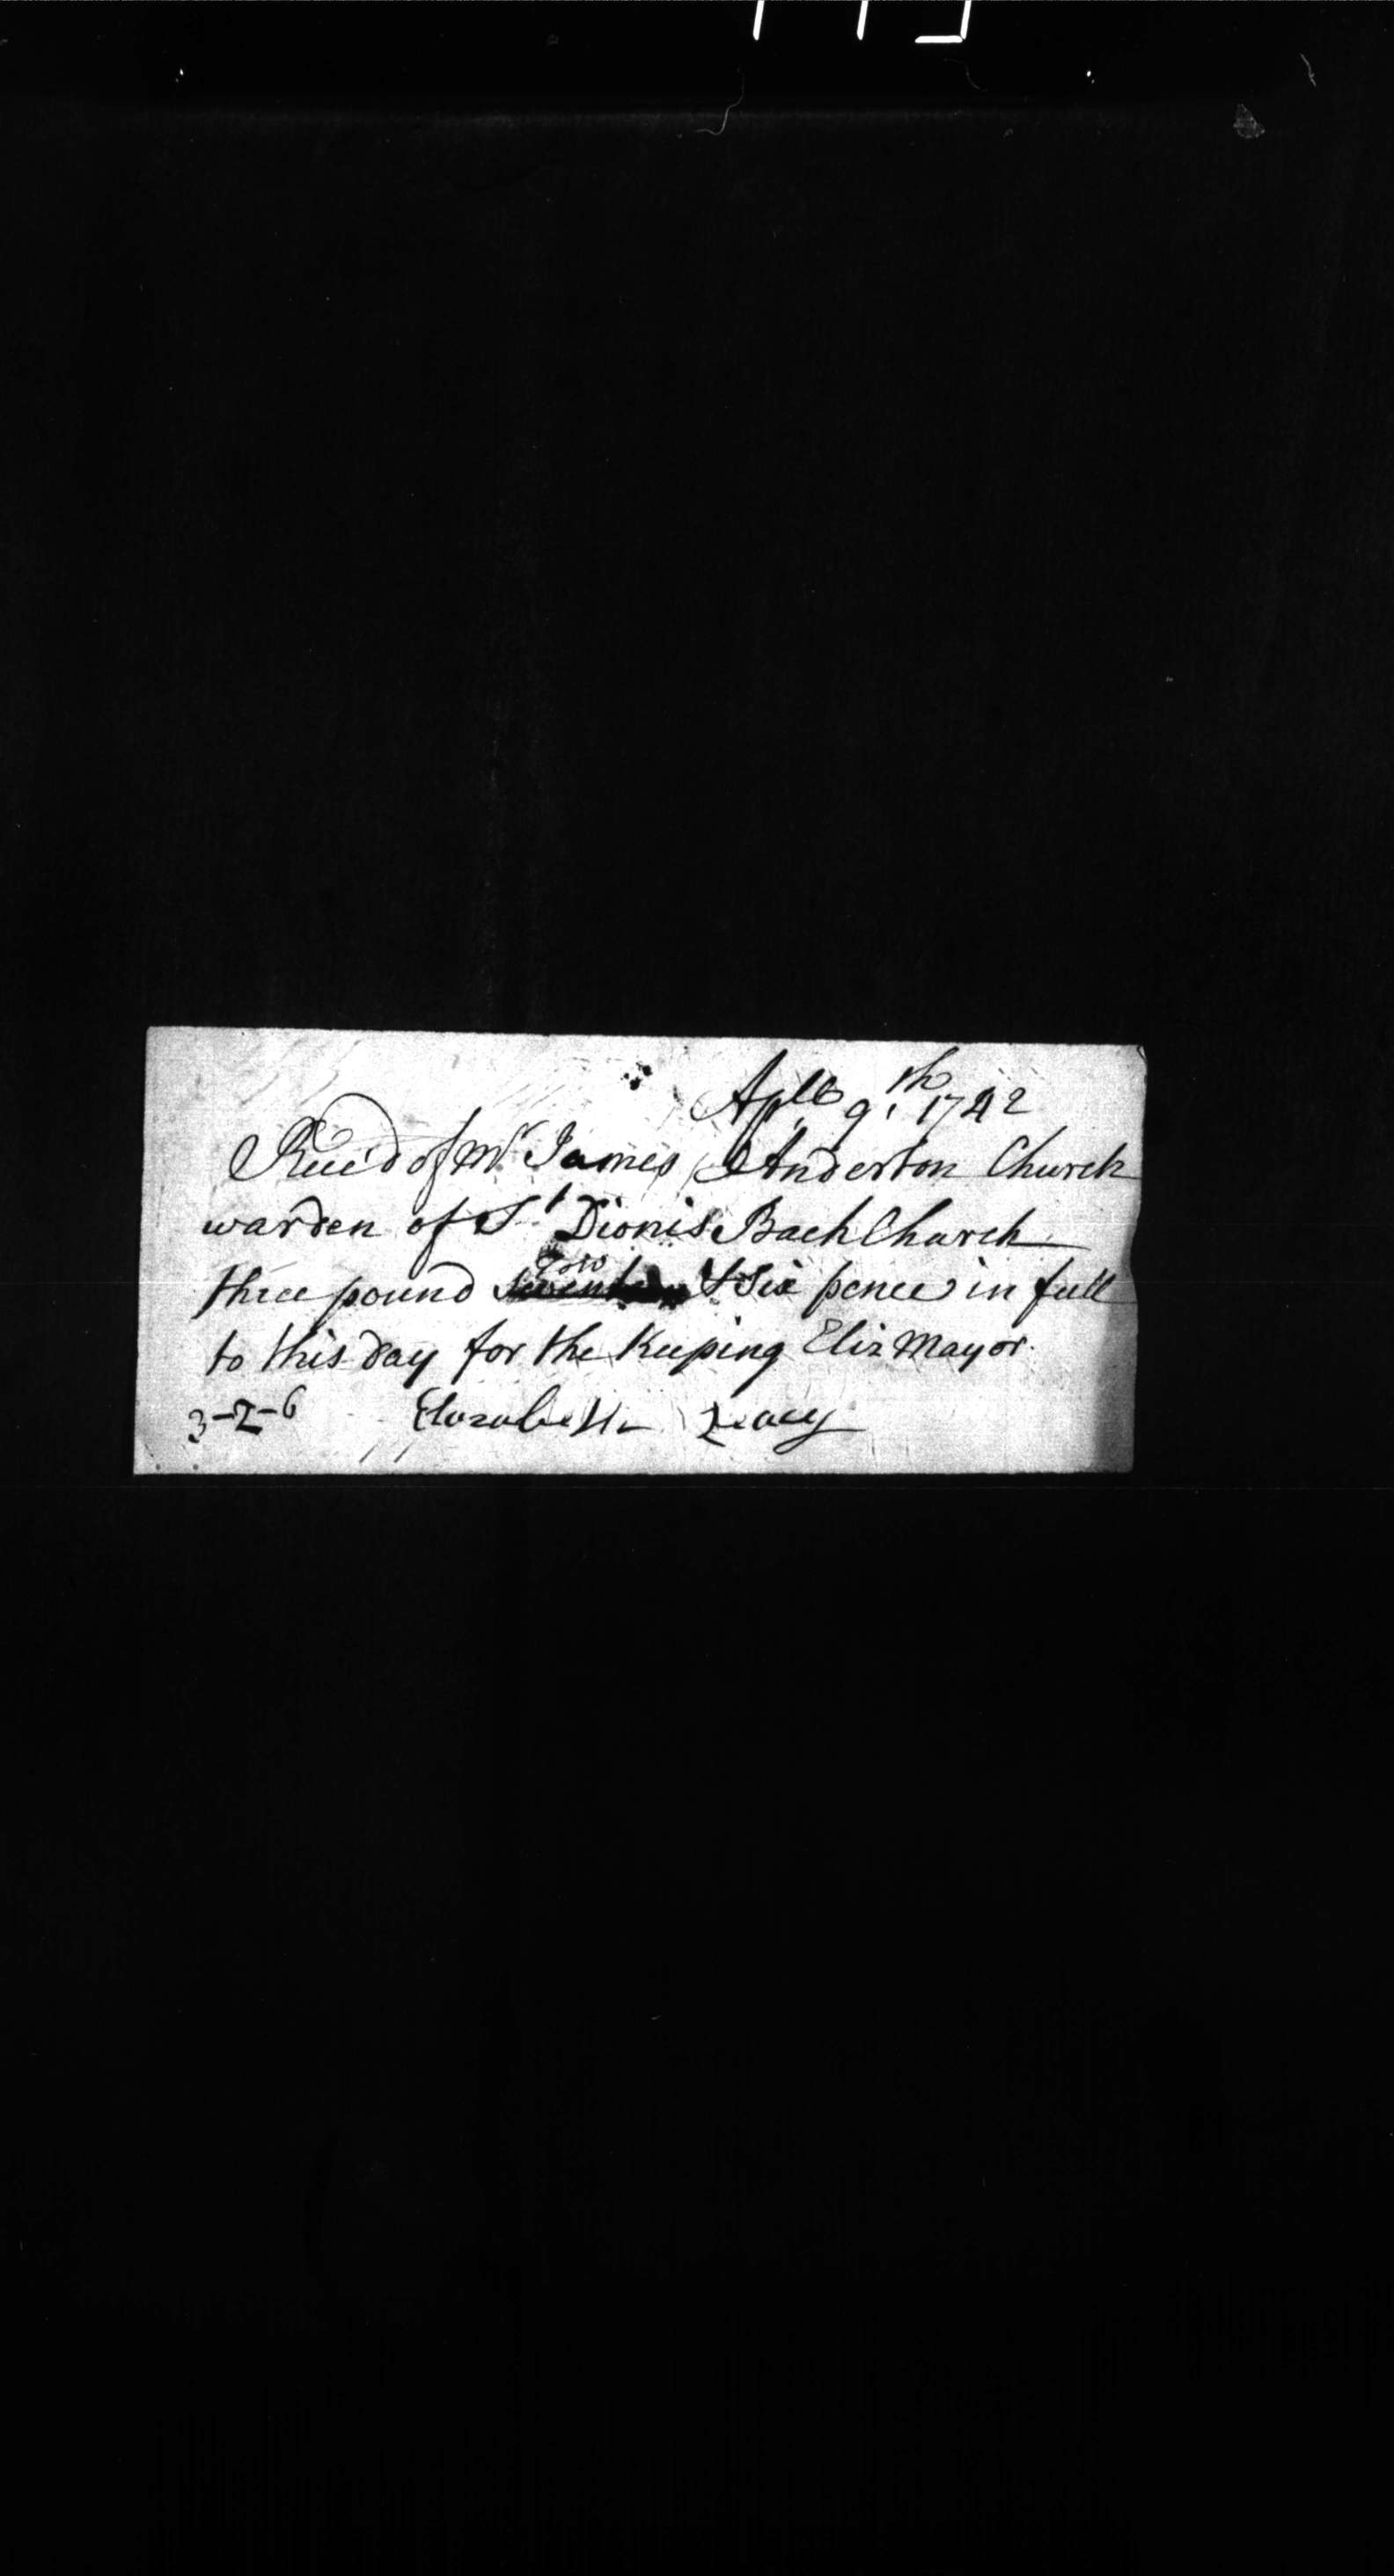 Aplll 9th 1742
Rec'd of Mr James Anderton Church
warden of St Dionis Bach Church
two
three pound seventeen & Six pence in full
to this day for the Keeping Eliz Mayor.
3-2-6 Elozabeth